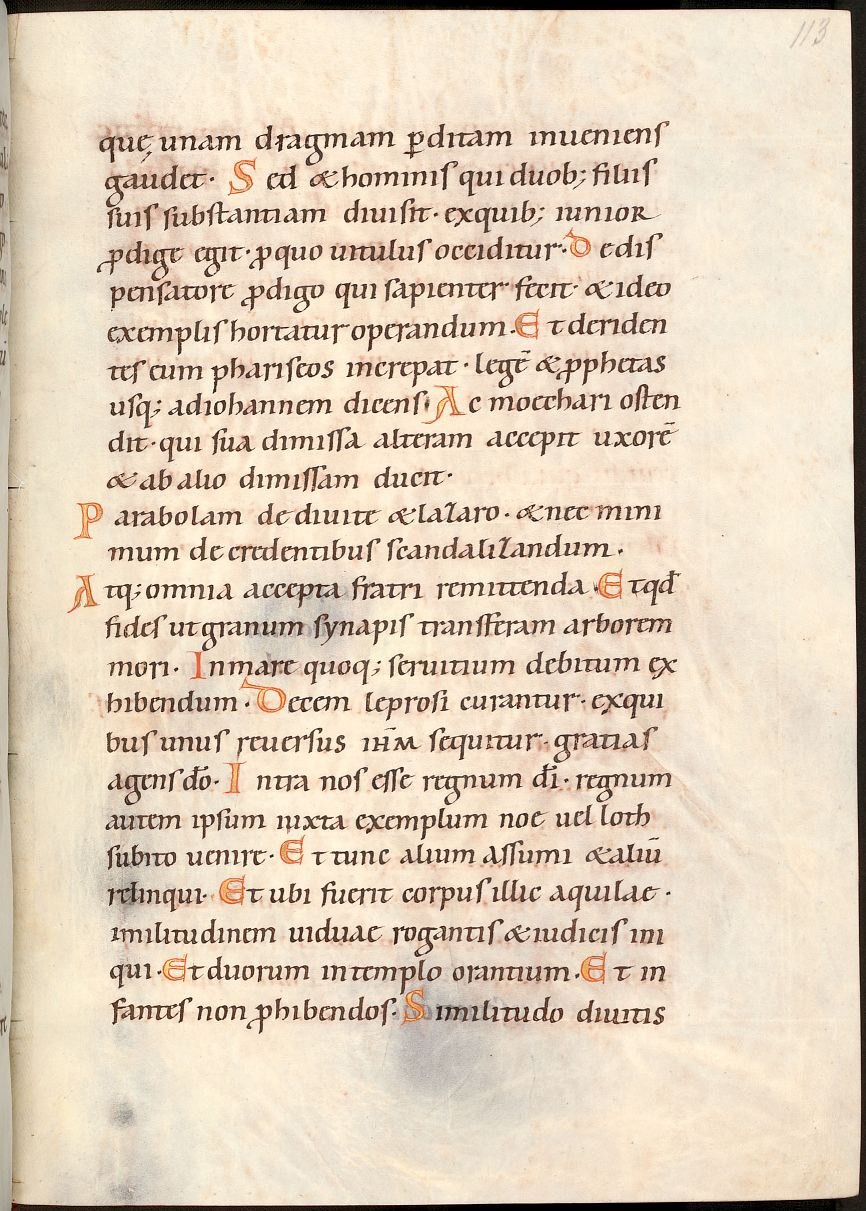 113
quę unam dragmam p̲ditam inueniens
gaudet· Sed & hominis qui duob; filiis
suis substantiam diuisit· exquib; iunior
ꝓdige egit· ꝓquo uitulus occiditur· Dedis
pensatore ꝓdigo qui sapienter fecit· & ideo
exemplis hortatur operandum. Et deriden
tes eum phariseos increpat· legē & ꝓphetas
usq; ad iohannem dicens· Ac moechari osten
dit· qui sua dimissa alteram accepit uxorē
& ab alio dimissam ducit·
Parabolam de diuite & lazaro· & nec mini
mum de credentibus scandalizandum.
Atq; omnia accepta fratri remittenda. Et qđ
fides ut granum synapis transferam arborem
mori. In mare quoq; seruitium debitum ex
hibendum. Decem leprosi curantur· exqui
bus unus reuersus ihm̄ sequitur· gratias
agens dō. Intra nos esse regnum dī· regnum
autem ipsum iuxta exemplum noe uel loth
subito uenire· Et tunc alium assumi & aliū
relinqui· Et ubi fuerit corpus illic aquilae.
imilitudinem uiduae rogantis & iudicis ini
qui. Et duorum in templo orantium. Et in
fantes non ꝓhibendos. Similitudo diuitis